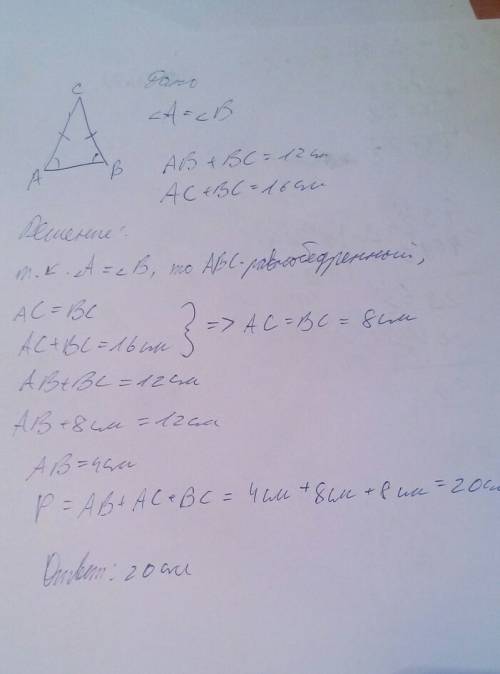 C
Дано
∠A = ∠B
A B
AB + BC = 12 см
AC + BC = 16 см
Решение:
т.к. ∠A = ∠B, то ABC - равнобедренный,
AC = BC
AC + BC = 16 см } => AC = BC = 8 см
AB + BC = 12 см
AB + 8 см = 12 см
AB = 4 см
P = AB + AC + BC = 4 см + 8 см + 8 см = 20 см
Ответ: 20 см